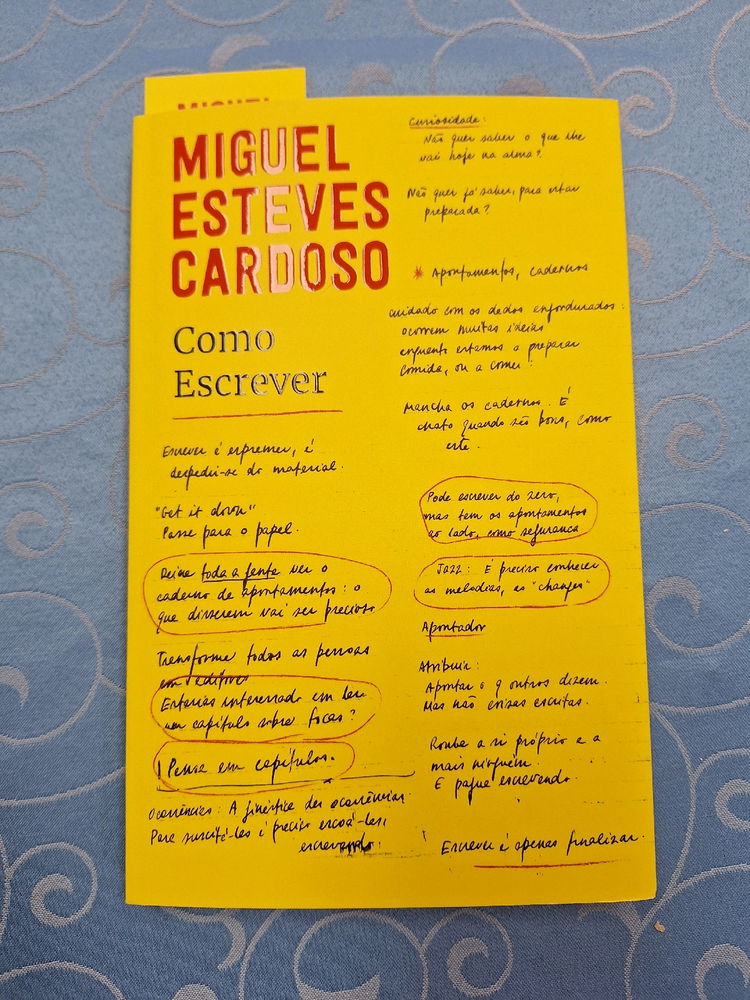 MIGUEL
MIGUEL
ESTEVES
CARDOSO
Como
Escrever
Escrever é espremer, é
despedir-se do material.
"Get it down"
Passe para o papel.
Deixe toda a gente ver o
caderno de apontamentos: o
que disserem vai ser precioso
Transforme todas as pessoas
em editores
Estarias interessado em ler
um capítulo sobre focas?
Pense em capítulos.
Ocorrências: A ginástica das ocorrências.
Para suscitá-las é preciso escoá-las,
escrevendo.
Curiosidade:
Não quer saber o que lhe
vai hoje na alma?
Não quer já saber, para estar
preparada?
* Apontamentos, cadernos
cuidado com os dedos engordurados:
ocorrem muitas ideias
enquanto estamos a preparar
comida, ou a comer!
Mancha os cadernos. É
chato quando são bons, como
este.
Pode escrever do zero,
mas tem os apontamentos
ao lado, como segurança
Jazz: É preciso conhecer
as melodias, as "changes"
Apontador
Atribuir:
Apontar o q outros dizem.
Mas não coisas escritas.
Roube a si próprio e a
mais ninguém.
E pague escrevendo.
Escrever é apenas finalizar.